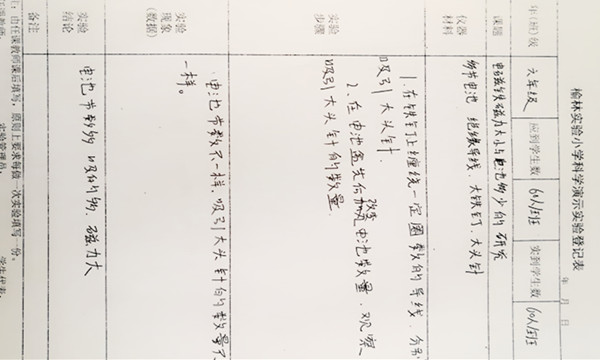 榆林实验小学科学演示实验登记表
年 月 日
年(班)级 六年级 应到学生数 60人/班 实到学生数 60人/班
课题 电磁铁磁力大小与电池多少的研究
仪器材料 多节电池、绝缘导线、大铁钉、大头针
实验步骤 1.在铁钉上缠绕一定圈数的导线,分别
吸引大头针.
2.在电池盒先后改变电池数量、观察
吸引大头针的数量.
实验现象(数据) 电池节数不一样,吸引大头针的数量不
一样。
实验结论 电池节数多 吸的多、磁力大
备注
由任课教师课后填写,原则上要求每做一次实验填写一份。
实验管理员: 学生代表: